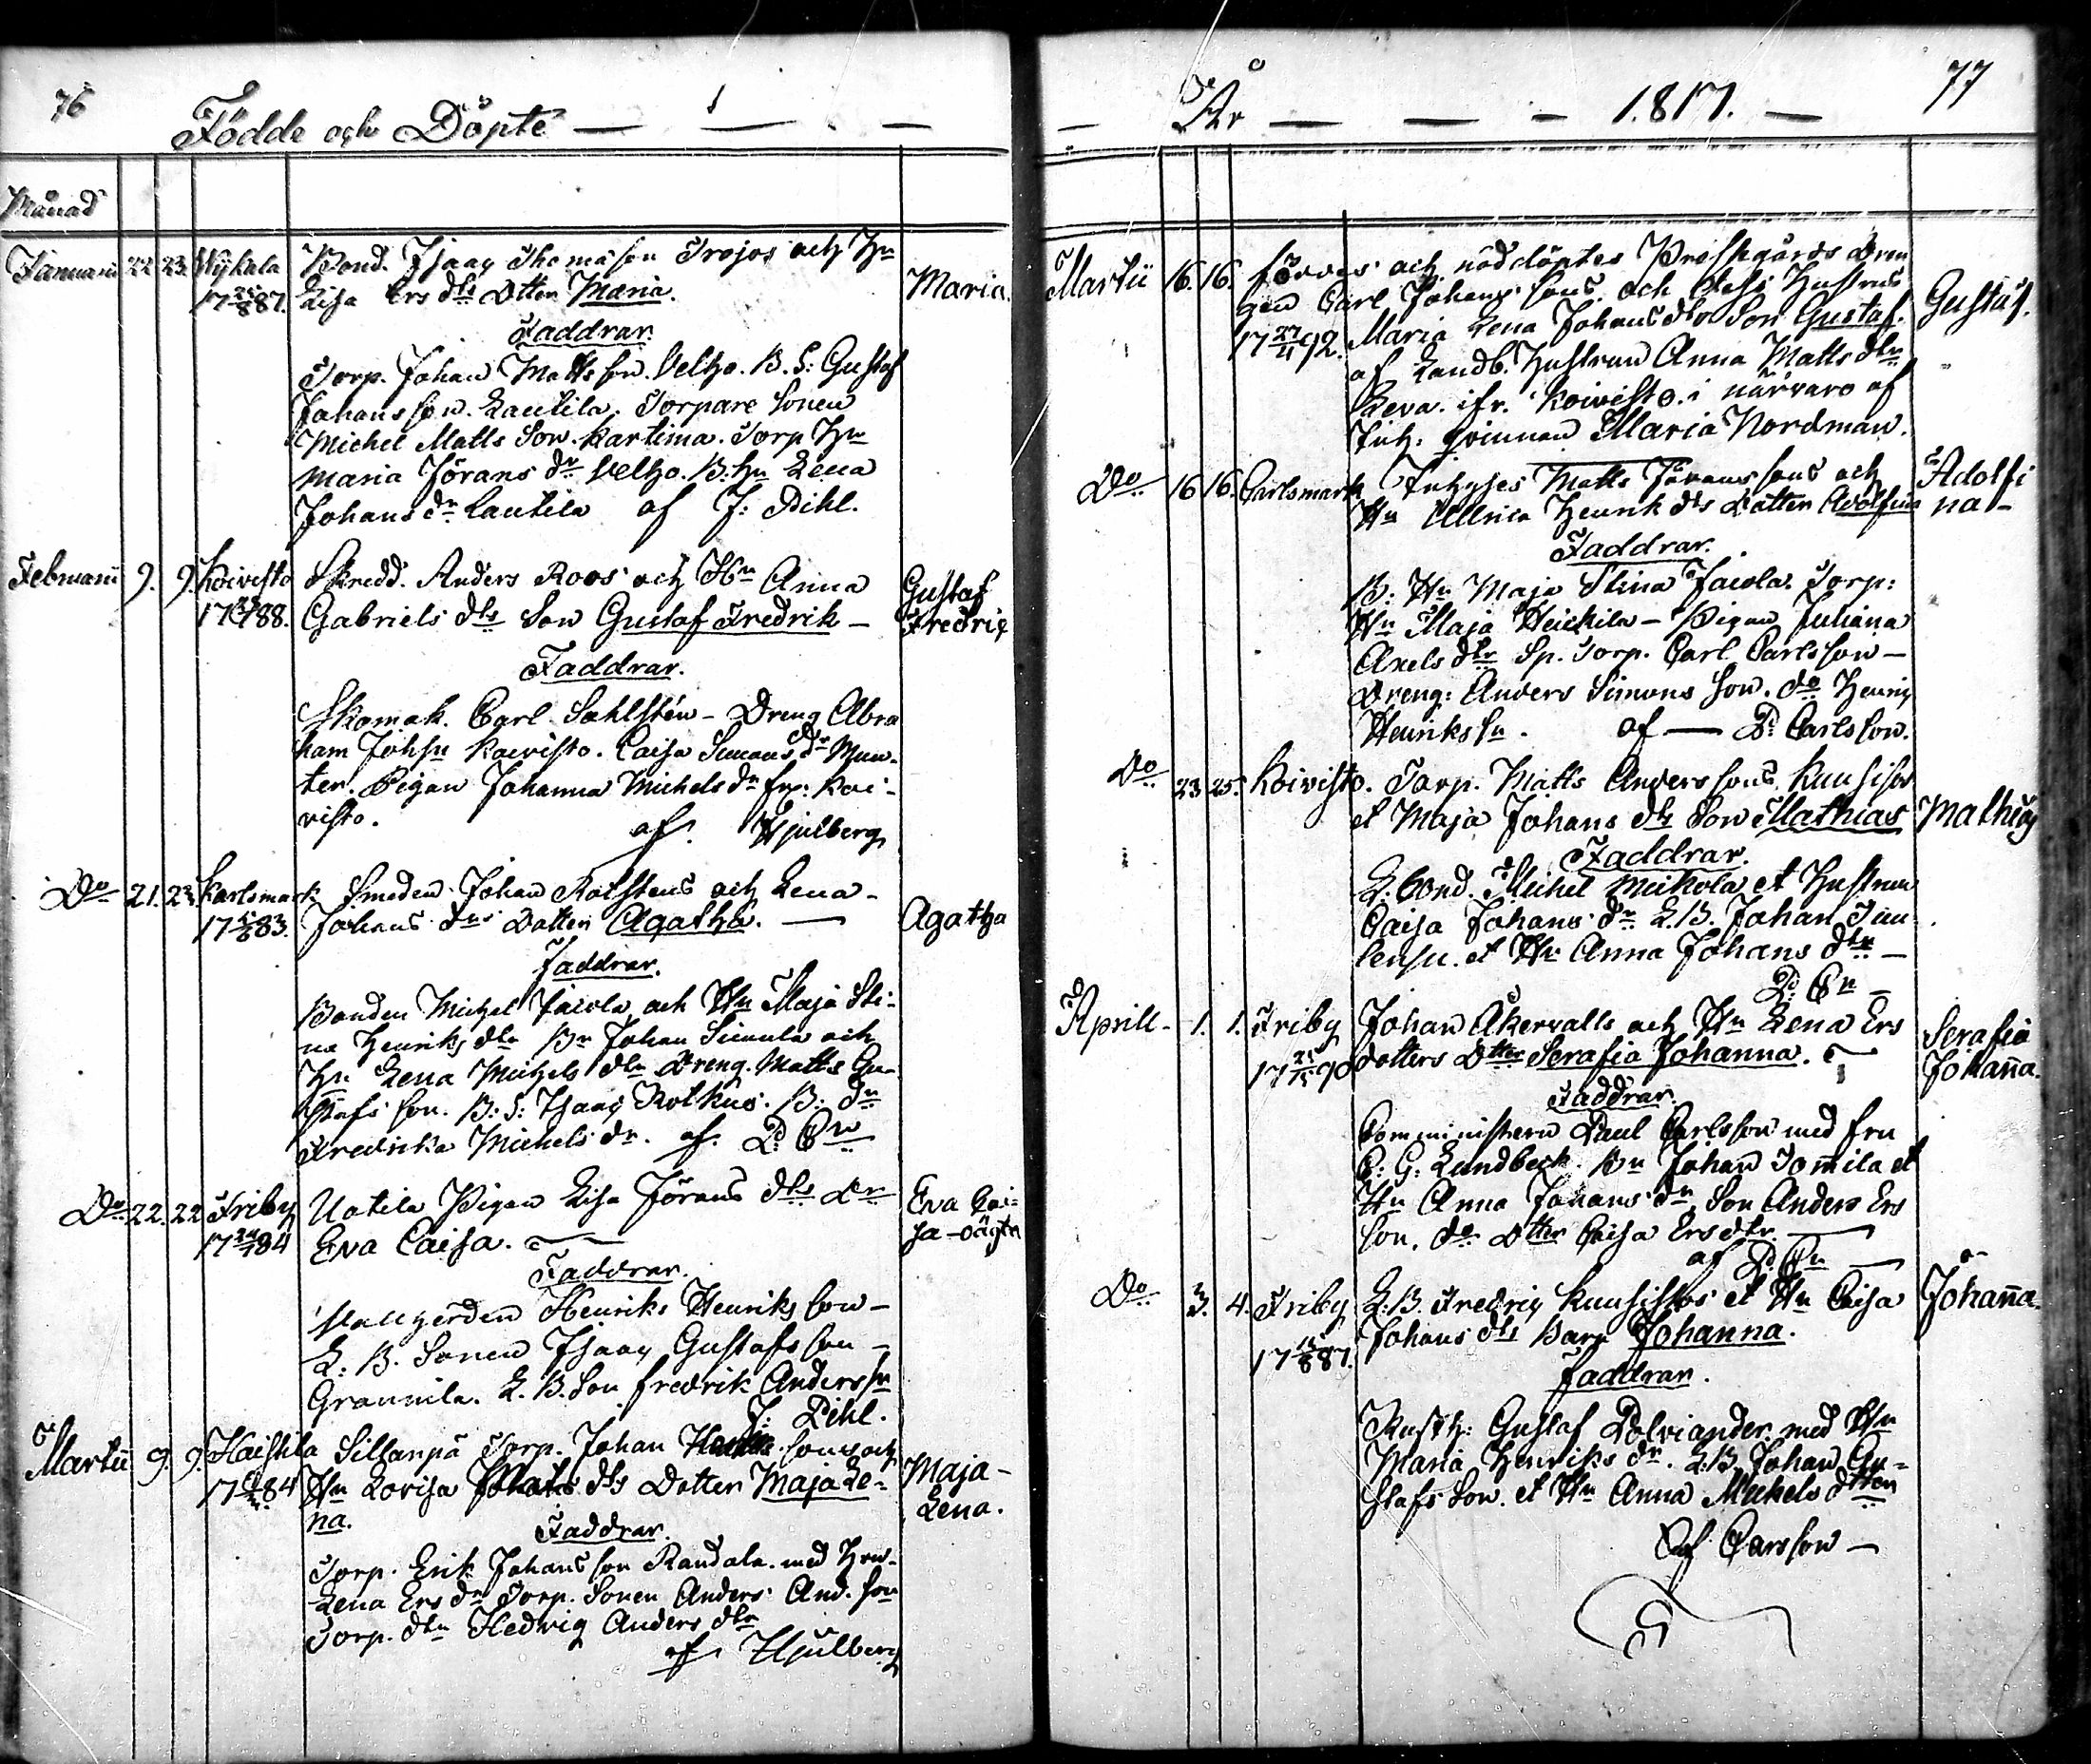 76
Födde och Döpte
Månad
Januarii 22 23 Nykala Bond. Isaac Thomasson Trojos och Hu
17 25/8 87. Lisa Ers dtr Dotter Maria. Maria.
Faddrar.
Torp. Johan Matts son. Veltzo. B. S: Gustaf
Johans son. Lautila. Torpare Sonen
Michel Matts Son. Kartima. Torp Hu
Maria Jörans dr Veltzo. B: hu Lena
Johans dr Lautila af J: Pihl.
Februarii 9. 9. Koivisto Skredd. Anders Roos och Hn Anna Gustaf
88. Gabriels dtr Son Gustaf Fredrik — Fredric
Faddrar.
Skomak. Carl Sahlstén — Dreng Abra
ham Johsn Koivisto. Caisa Simons dr Mun-
ter. Pigan Johanna Michels dr frn: Koi-
visto. af. Hjulberg
Do 21. 23 Karlsmark Smeden Johan Rolstens och Lena —
17 83. Johans drs Dotter Agatha. — Agatha
Faddrar.
Bonden Michel Jacola och Hn Maja Sti-
na Henrics dtr Bn Johan Simula och
Hn Lena Michels dtr Dreng. Matts Gu-
stafs son. B: S: Isaac Rotkus. B: dr
Fredrika Michels dr. af. P: Cn
Do 22. 22 Friby Uotila Pigan Lisa Jörans dtrs dr Eva Cai-
84 Eva Caisa. sa - oägta
Faddrar.
Henriks Henriks son —
L: B. Sonen Isaac Gustafs son —
Grannila. L. B. Son fredrik Anderssn
J: Pihl.
Martii 9. 9. Haistila Sillanpä Torp. Johan sons och Maja -
84 Hn Lovisa dtrs Dotter Maja Le- Lena.
na.
Faddrar.
Torp. Erik Johans son Randala. med Hru-
Lena Ers dr Torp. Sonen Anders And. son
Torp. dtr Hedvig Anders dtr
af Hjulberg
År 1817. 77
Martii 16. 16. föddes och nöddöptes Prostgårds Dren
gen Carl Johans sons. och dess Hustrus Gustaf.
17 27/11 92. Maria Lena Johans dtr Son Gustaf.
af Landb. Hustrun Anna Matts dtr
Leva. ifr. Koivisto. i närvaro af
Inh. qvinnan Maria Nordman.
Do 16 16. Carlsmark Inhyses Matts Jörans sons och Adolfi
Hn Ulrica Henrik dtrs Dotter Adolfina na -
Faddrar.
B. Hn Maja Stina Jacola. Torp:
Hn Maja Heickila — Pigan Juliana
Axels dtr Sp. Torp. Carl Carlsson —
Dreng: Anders Simons Son. do Henric
Henrikssn. af — P: Carlsson.
Do 23 25. Koivisto. Torp. Matts Anderssons Kuusistos
et Maja Johans dtrs Son Mathias Mathias
Faddrar.
L. bond. Michel Meikola et Hustrun
Caisa Johans dr L. B. Johan
et Hn Anna Johans dtr —
P: Cn —
Aprill - 1. 1. Friby Johan Åkervalls och Hn Lena Ers Serafia
90 dotters Dotter Serafia Johanna. Johanna.
Faddrar.
Comministern Paul Carlsson med fru
C: G: Lundbeck. Bn Johan Tommila et
Hn Anna Johans dr Son Anders Ers
son. do Dotter Caisa Ersdtr. —
af P. Cn —
Do 3. 4. Friby L: B. Fredric Kuusistos et Hn Caisa Johanna.
87. Johans dtrs Barn Johanna.
Faddrar.
Rusth: Gustaf Polviander. med Hn
Maria Henriks dr. L. B. Johan Gu-
stafs Son. et Hn Anna Michels dotter
af Carsson —